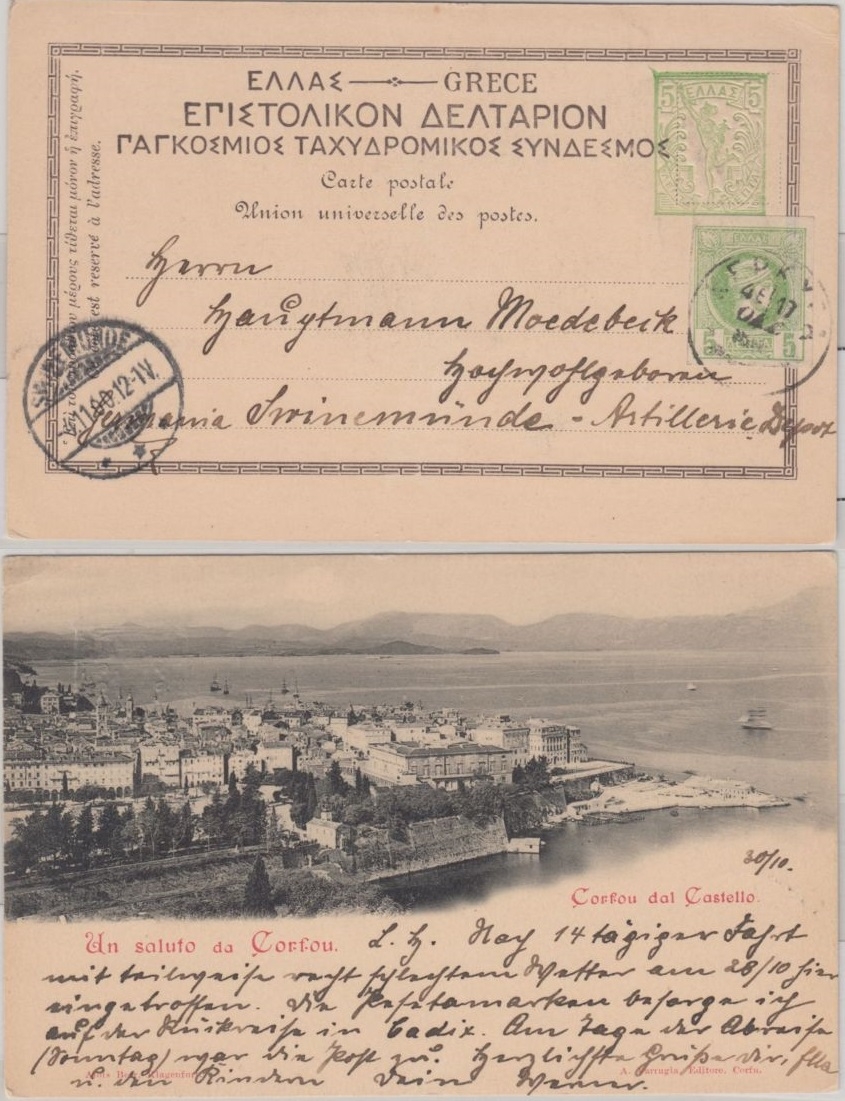 ΕΛΛΑΣ — GRECE
ΕΠΙΣΤΟΛΙΚΟΝ ΔΕΛΤΑΡΙΟΝ
ΠΑΓΚΟΣΜΙΟΣ ΤΑΧΥΔΡΟΜΙΚΟΣ ΣΥΝΔΕΣΜΟΣ
Carte postale
Union universelle des postes.
μέρους τίθεται μόνον ἡ ἐπιγραφή.
est reservé à l'adresse.
5 ΕΛΛΑΣ 5
ΕΛΛΑΣ
5 ΛΕΠΤΑ 5
Herrn
Hauptmann Moedebeck
Hochwohlgeboren
Germania Swinemünde - Artillerie Depot
SWINEMÜNDE
12-1V.
30/10.
Corfou dal Castello.
Un saluto da Corfou.
L. H. Nach 14 tägiger Fahrt
mit teilweise recht schlechtem Wetter am 28/10 hier
eingetroffen. Die Pesetamarken besorge ich
auf der Rückreise in Cadix. Am Tage der Abreise
(Sonntag) war die Post zu. Herzlichste Grüße dir, Ella
u. den Kindern Dein Werner.
A. Farrugia, Editore. Corfu.